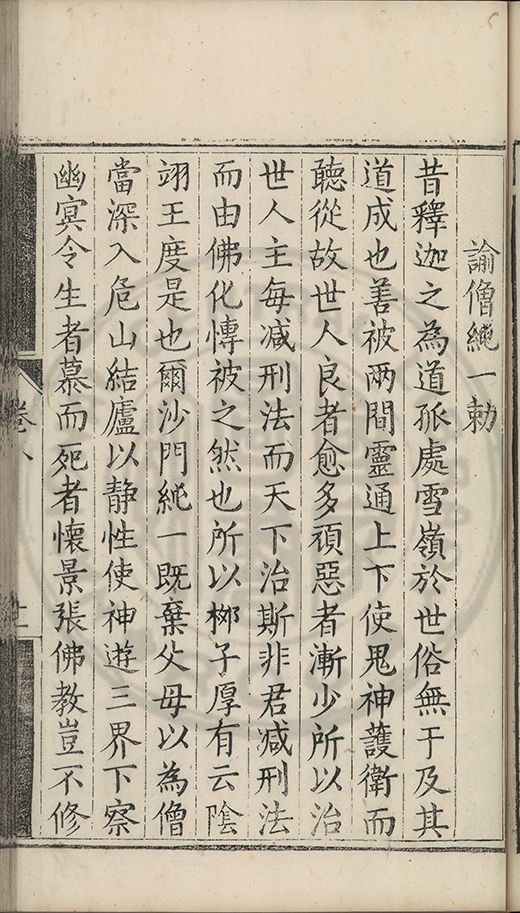 諭僧純一勅
昔釋迦之為道孤處雪嶺於世俗無干及其
道成也善被兩間靈通上下使鬼神護衛而
聽從故世人良者愈多頑惡者漸少所以治
世人主每减刑法而天下治斯非君减刑法
而由佛化慱被之然也所以栁子厚有云隂
翊王度是也爾沙門純一既棄父母以為僧
當深入危山結廬以静性使神遊三界下察
幽冥令生者慕而死者懷景張佛教豈不修
卷八